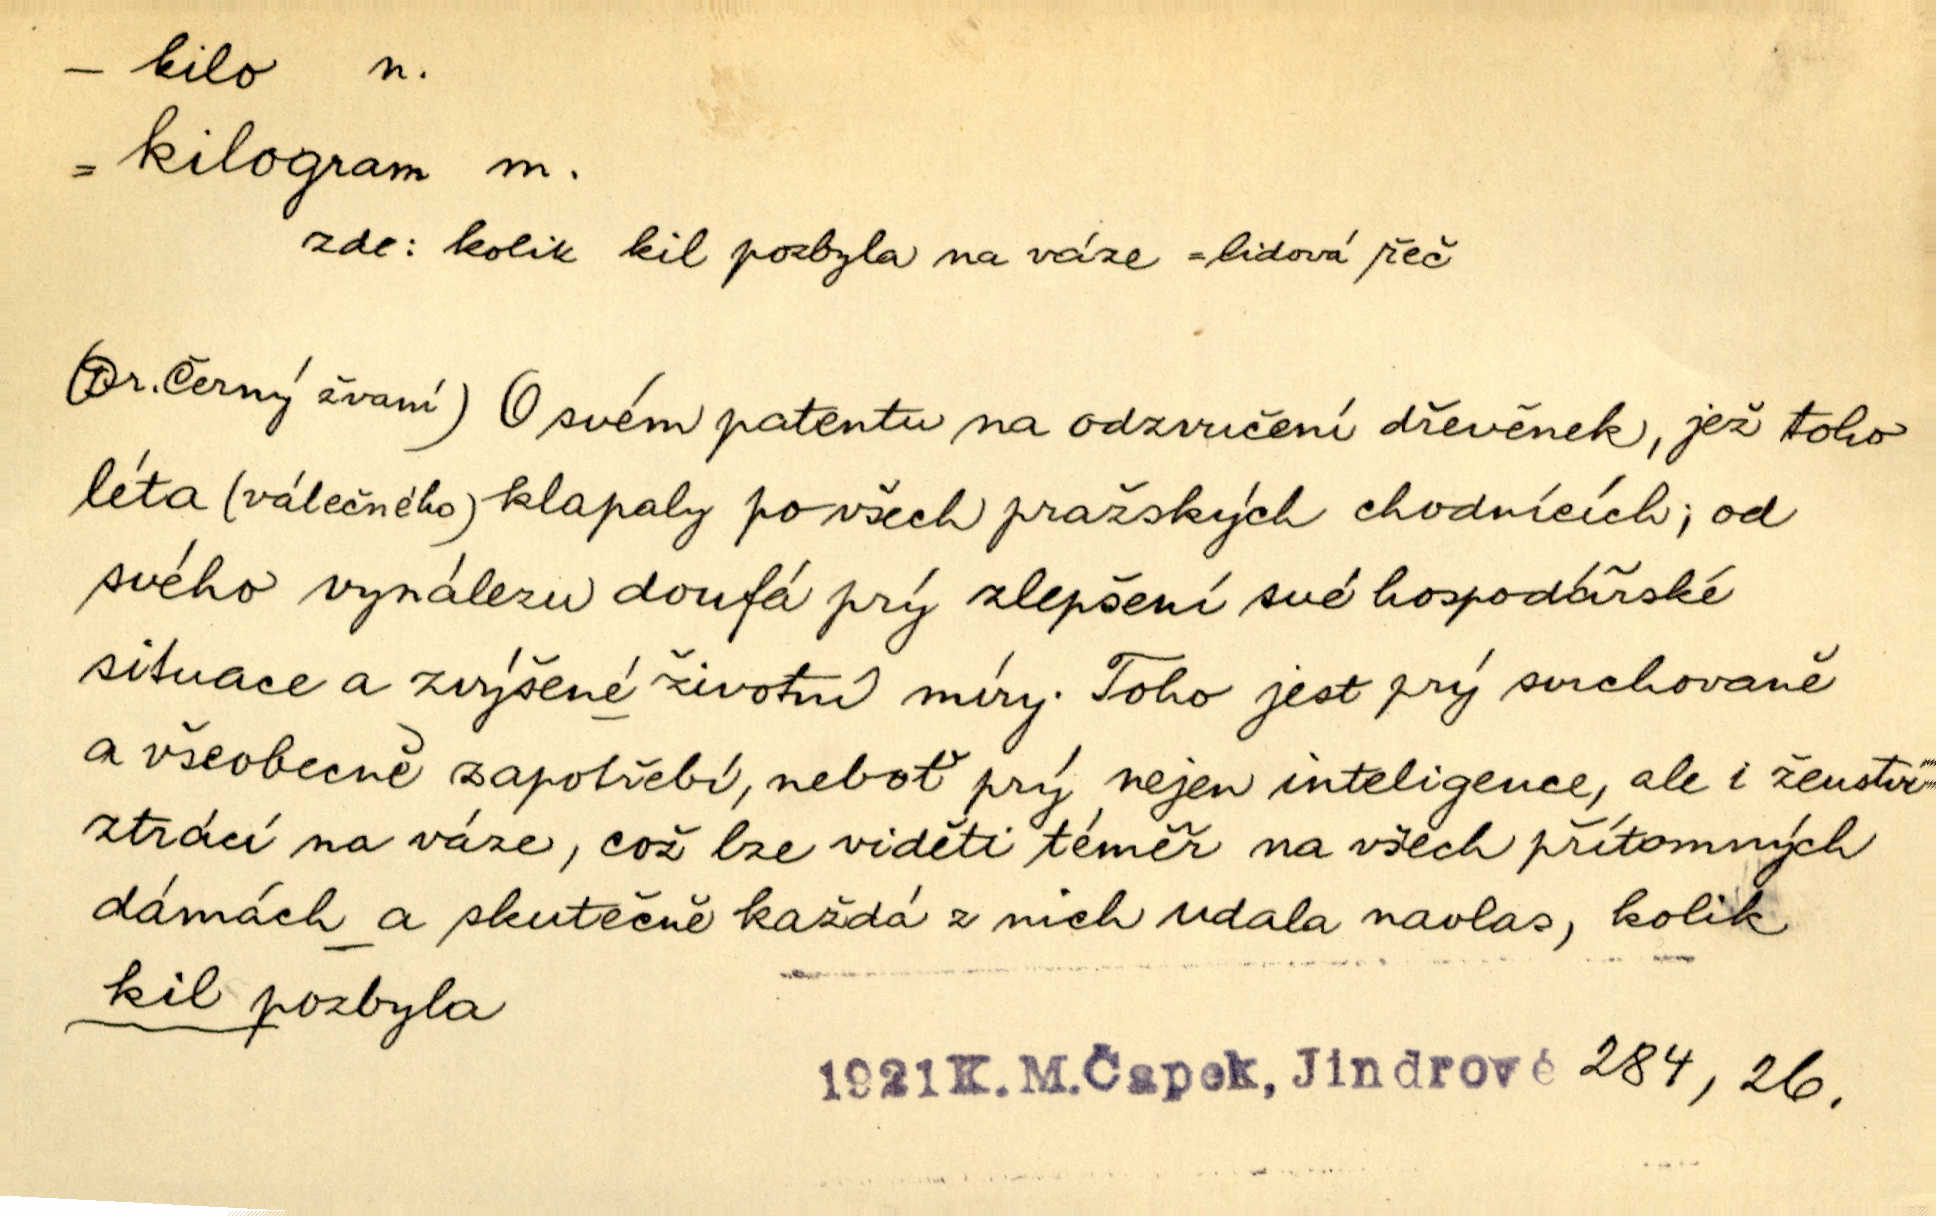 – kilo n.
= kilogram m.
zde: kolik kil pozbyla na váze = lidová řeč
(Dr. Černý žvaní) O svém patentu na odzvučení dřevěnek, jež toho
léta (válečného) klapaly po všech pražských chodnících; od
svého vynálezu doufá prý zlepšení své hospodářské
situace a zvýšené životní míry. Toho jest prý svrchovaně
a všeobecně zapotřebí, neboť prý nejen inteligence, ale i ženství
ztrácí na váze, což lze viděti téměř na všech přítomných
dámách a skutečně každá z nich udala navlas, kolik
kil pozbyla
1921 K. M. Čapek, Jindrové 284, 26.